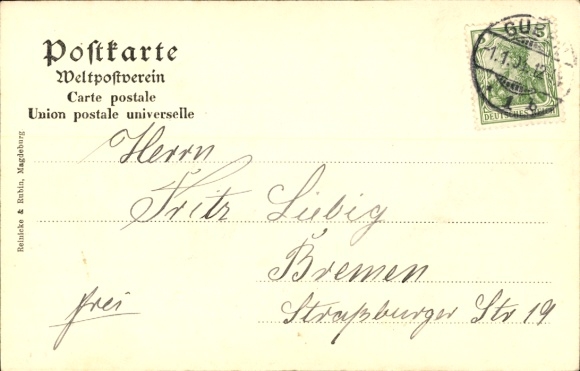 Postkarte
Weltpostverein
Carte postale
Union postale universelle
Reinicke & Rubin, Magdeburg
GUB
1.1.
DEUTSCHES REICH
Herrn
Fritz Liebig
Bremen
Straßburger Str 19
frei